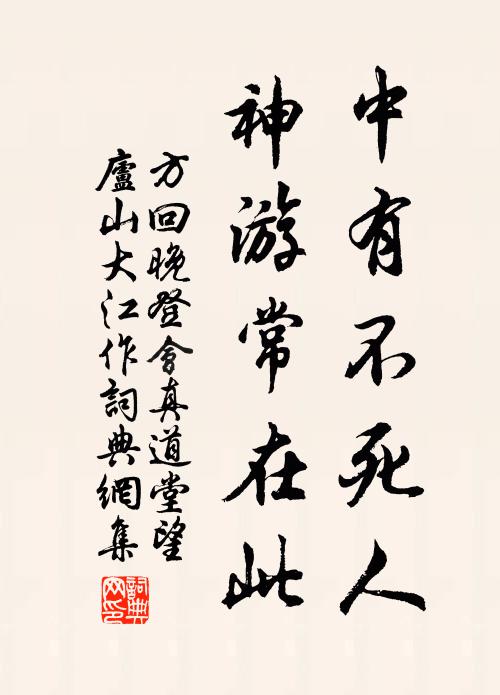 中有不死人
神游常在此
方回晚登會真道堂望
廬山大江作詞典網集
詞典
网印